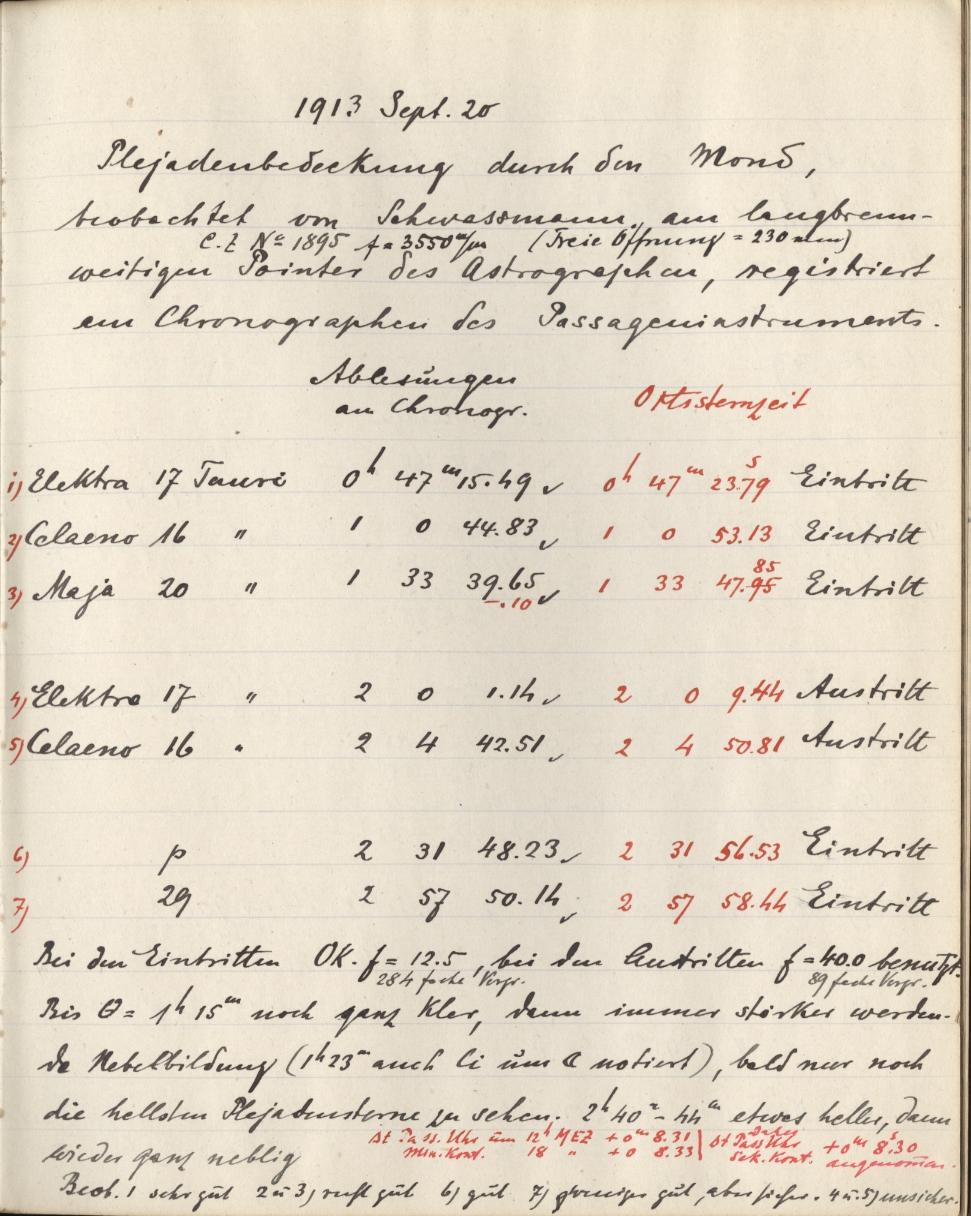 1913 Sept. 20
Plejadenbedeckung durch den Mond,
beobachtet von Schwassmann, am langbrenn-
C. Z No 1895 f = 3550 m/m (Freie Öffnung = 230 mm)
weitigen Pointer des Astrographen, registriert
am Chronographen des Passageninstruments.
Ablesungen
am Chronogr. Ortssternzeit
1) Elektra 17 Tauri 0h 47m 15.49 ✓ 0h 47m 23.s79 Eintritt
2) Celaeno 16 " 1 0 44.83 ✓ 1 0 53.13 Eintritt
85
3) Maja 20 " 1 33 39.65 ✓ 1 33 47.95 Eintritt
-.10
4) Elektra 17 " 2 0 1.14 ✓ 2 0 9.44 Austritt
5) Celaeno 16 " 2 4 42.51 ✓ 2 4 50.81 Austritt
6) p 2 31 48.23 ✓ 2 31 56.53 Eintritt
7) 29 2 57 50.14 ✓ 2 57 58.44 Eintritt
Bei den Eintritten OK. f = 12.5, bei den Austritten f = 40.0 benutzt.
284 fache Vergr. 89 fache Vergr.
Bis θ = 1h 15m noch ganz klar, dann immer stärker werden-
de Nebelbildung (1h 23m auch Ci um ☾ notiert), bald nur noch
die hellsten Plejadensterne zu sehen. 2h 40m - 44m etwas heller, dann
wieder ganz neblig
Δt Pass. Uhr um 12h MEZ +0m 8.31 | Daher
Min. Kont. 18 " +0 8.33 | Δt Pass Uhr +0m 8s.30
Sek. Kont. angenommen.
Beob. 1 sehr gut 2 u 3) recht gut 6) gut 7) weniger gut, aber sicher. 4 u. 5) unsicher.